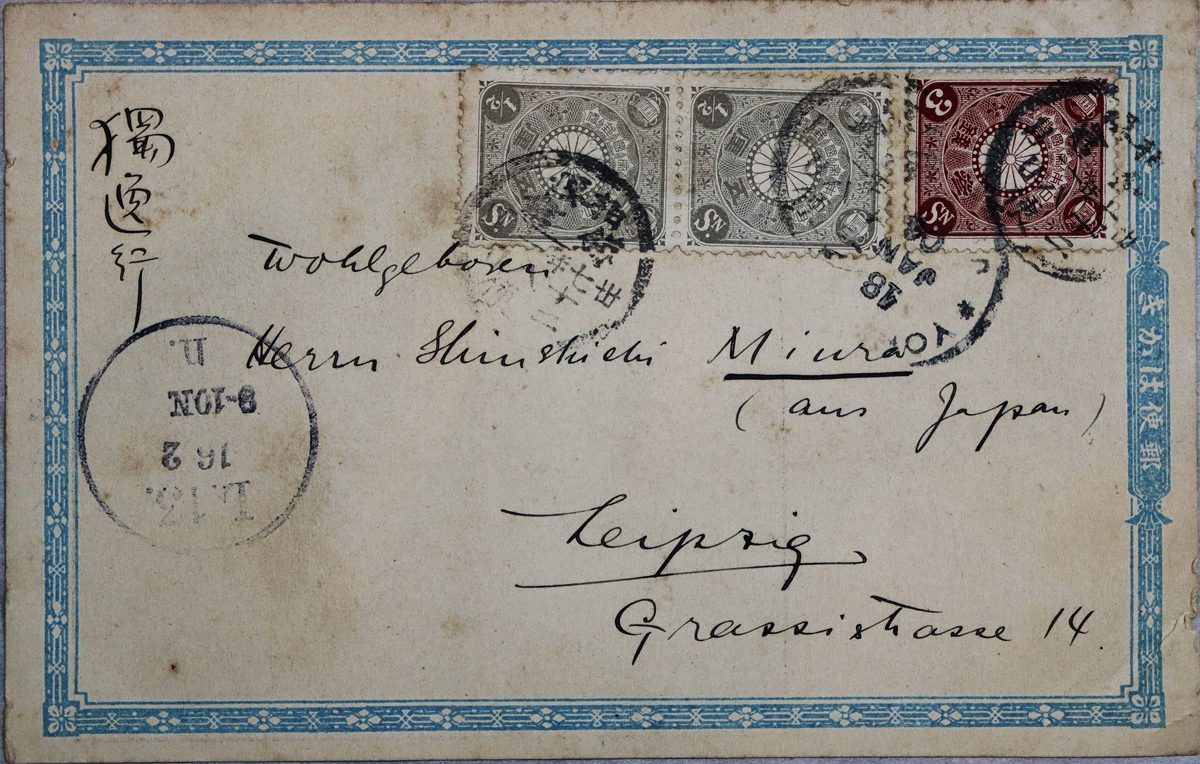 獨逸行
Wohlgeboren
Herrn Shinshichi Miura
(aus Japan)
Leipzig
Grassistrasse 14.
郵便はかき
1/2 1/2 3
Sn. Sn. Sn.
18
JAN
L.13.
16 2
9-10N
II.